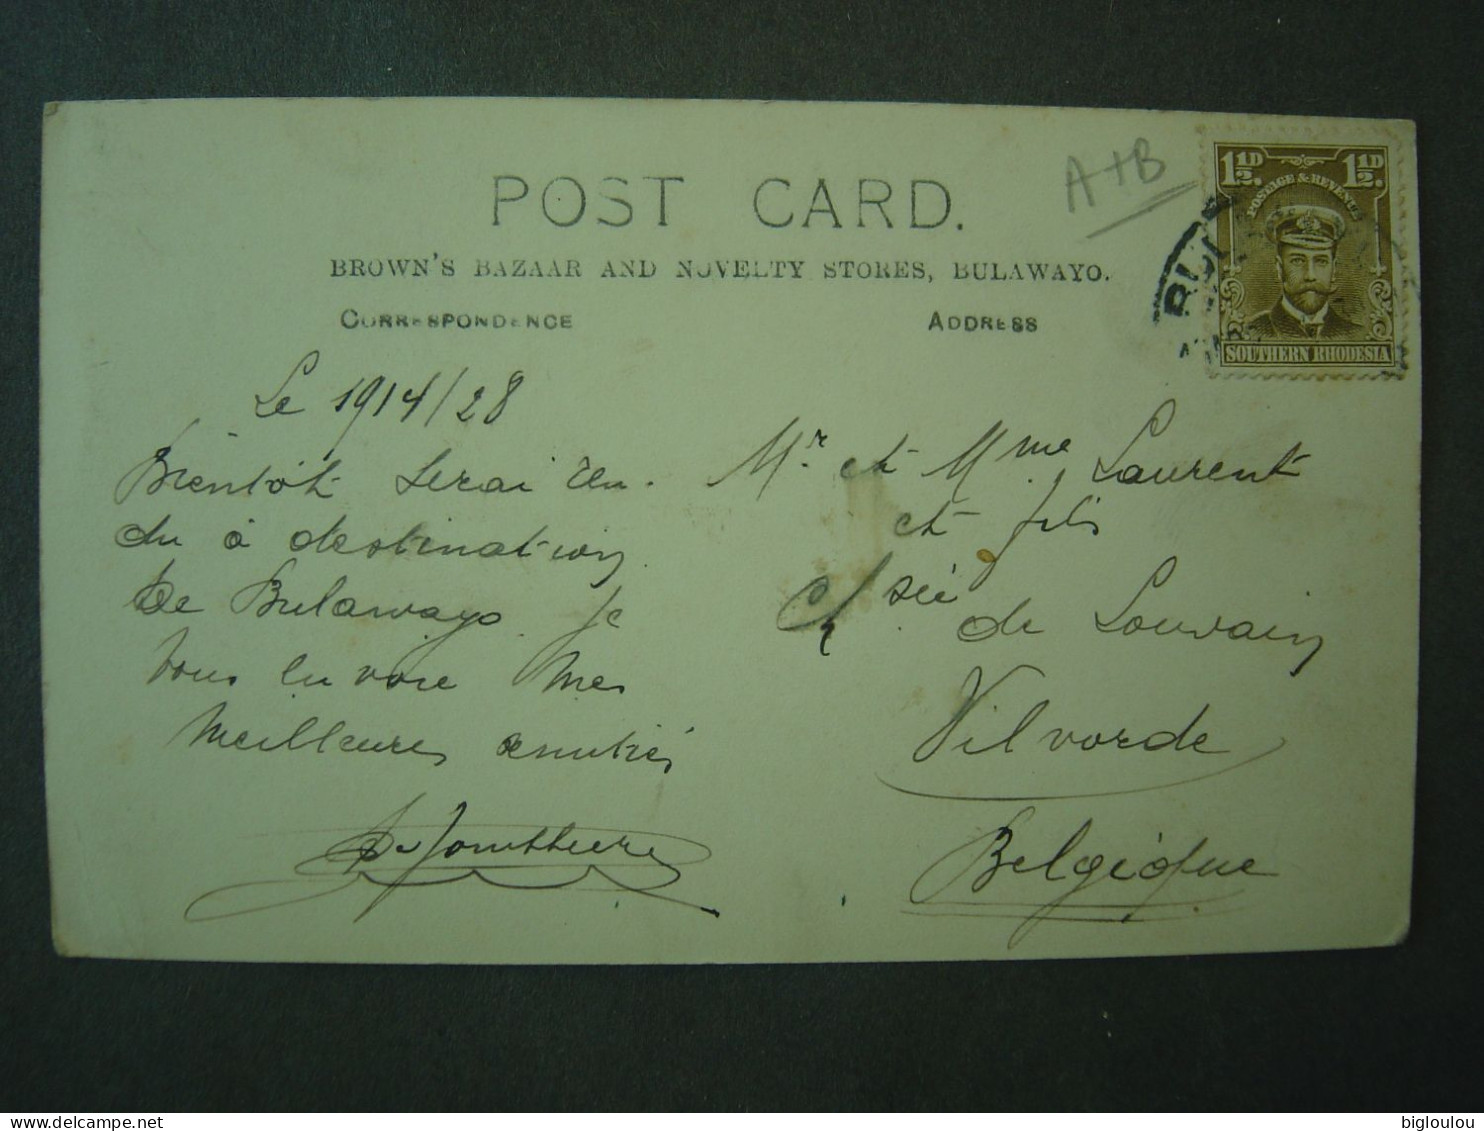 A+B
POST CARD.
BROWN'S BAZAAR AND NOVELTY STORES, BULAWAYO.
CORRESPONDENCE
ADDRESS
1½D. 1½D.
POSTAGE & REVENUE
SOUTHERN RHODESIA
BUL
Le 1914/28
Bientôt serai ren.
du à destination
de Bulawayo. Je
vous envoie mes
meilleures amitiés
Mr. et Mme. Laurent
et fils
Ch/sée de Louvain
Vilvorde
Belgique
bigloulou